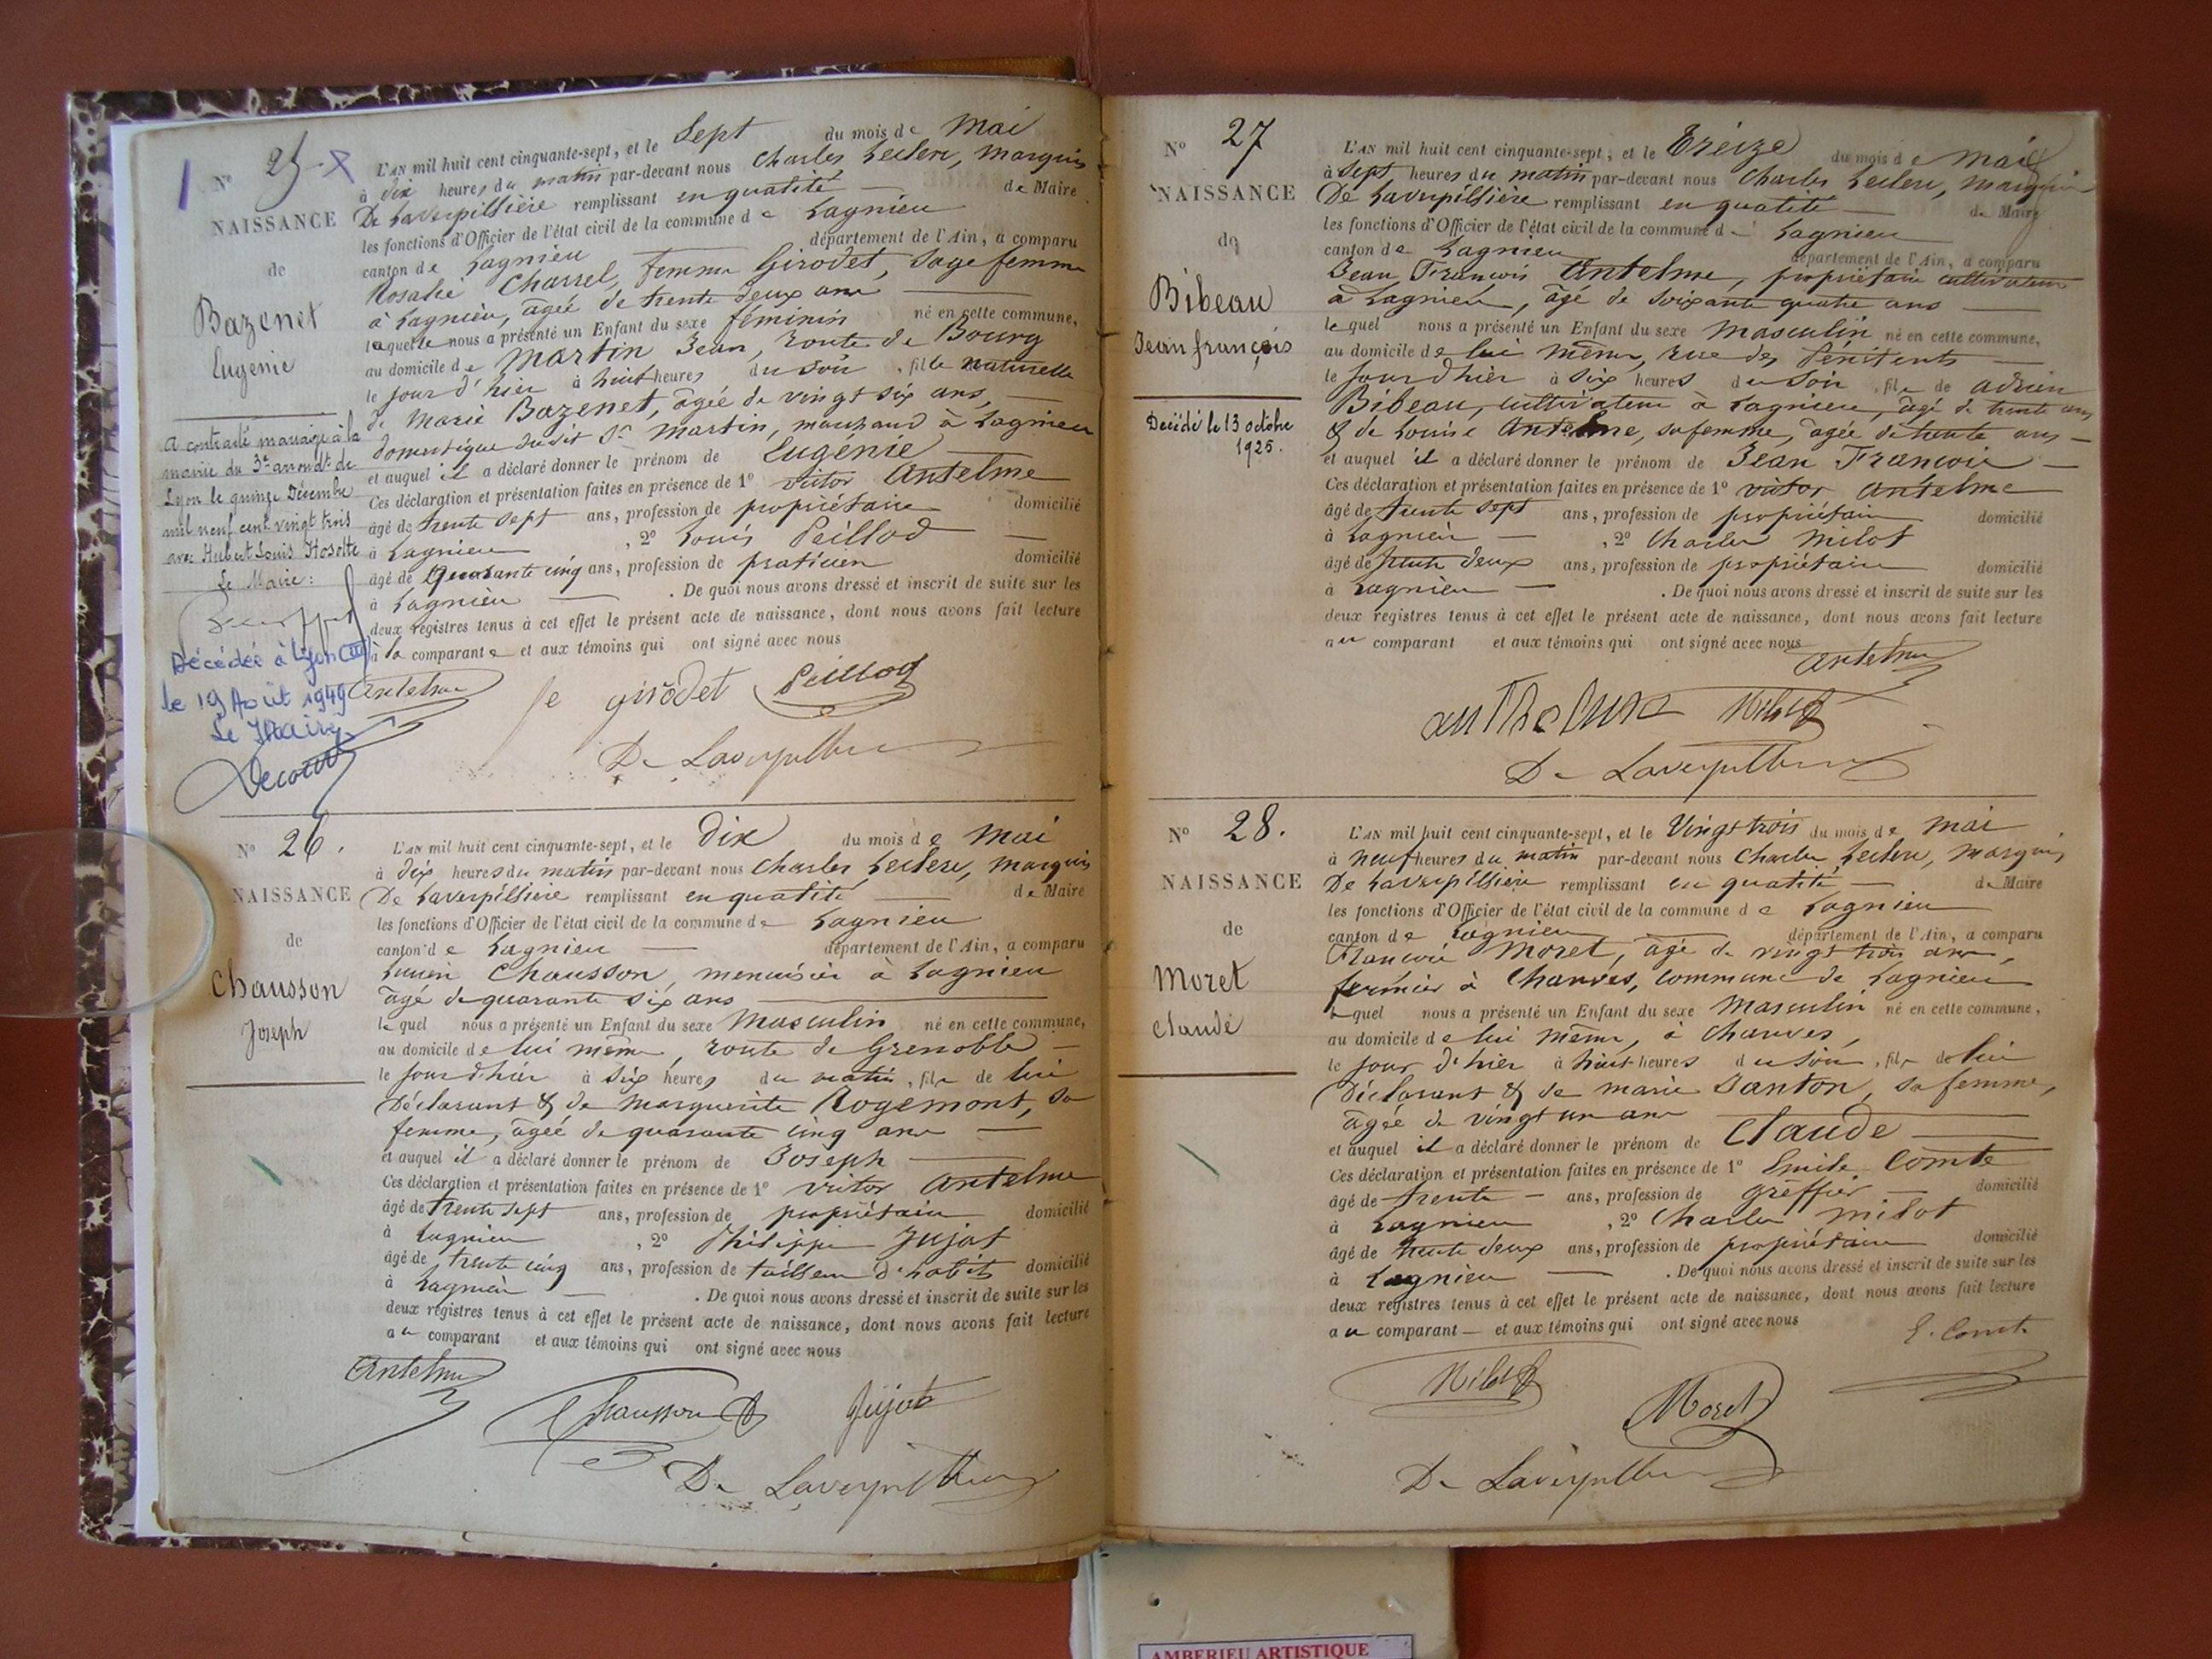 N° 25.
NAISSANCE
de
Bazenet
Eugenie
A contracté mariage à la
mairie du 3e arrondt de
Lyon le quinze Décembre
mil neuf cent vingt trois
avec Hubert Louis
Le Maire:
Décédée à Lyon (III)
le 19 Août 1949
Le Maire
L'AN mil huit cent cinquante-sept, et le Sept du mois de Mai
à dix heures du matin par-devant nous Charles Leclerc, Marquis
De Laverpillière remplissant en qualité — de Maire
les fonctions d'Officier de l'état civil de la commune de Lagnieu
canton de Lagnieu département de l'Ain, a comparu
Rosalie Charrel, femme Girodet, Sage femme
à Lagnieu, âgée de trente deux ans
laquelle nous a présenté un Enfant du sexe féminin né en cette commune,
au domicile de Martin Jean, route de Bourg
le jour d'hier à huit heures du soir, fille naturelle
de Marie Bazenet, âgée de vingt six ans,
domestique dudit Sr Martin, marchand à Lagnieu
et auquel il a déclaré donner le prénom de Eugénie
Ces déclaration et présentation faites en présence de 1° Victor Antelme
âgé de trente sept ans, profession de propriétaire domicilié
à Lagnieu, 2° Louis Peillod
âgé de Quarante cinq ans, profession de praticien domicilié
à Lagnieu — . De quoi nous avons dressé et inscrit de suite sur les
deux registres tenus à cet effet le présent acte de naissance, dont nous avons fait lecture
à la comparante et aux témoins qui ont signé avec nous
Antelme fe girodet Peillod
De Laverpillière
N° 26.
NAISSANCE
de
Chausson
Joseph
L'AN mil huit cent cinquante-sept, et le Dix du mois de Mai
à dix heures du matin par-devant nous Charles Leclerc, Marquis
De Laverpillière remplissant en qualité — de Maire
les fonctions d'Officier de l'état civil de la commune de Lagnieu
canton de Lagnieu — département de l'Ain, a comparu
Lucien Chausson, menuisier à Lagnieu
âgé de quarante six ans
lequel nous a présenté un Enfant du sexe Masculin né en cette commune,
au domicile de lui même, route de Grenoble —
le jour d'hier à six heures du matin, fils de lui
Déclarant & de Marguerite Rogemont, sa
femme, âgée de quarante cinq ans —
et auquel il a déclaré donner le prénom de Joseph
Ces déclaration et présentation faites en présence de 1° Victor Antelme
âgé de trente sept ans, profession de propriétaire domicilié
à Lagnieu, 2° Philippe Jujat
âgé de trente cinq ans, profession de tailleur d'habits domicilié
à Lagnieu — . De quoi nous avons dressé et inscrit de suite sur les
deux registres tenus à cet effet le présent acte de naissance, dont nous avons fait lecture
au comparant et aux témoins qui ont signé avec nous
Antelme
Chausson Jujat
De Laverpillière
N° 27
NAISSANCE
de
Bibeau
Jean françois
Décédé le 13 octobre
1925.
L'AN mil huit cent cinquante-sept, et le Treize du mois de Mai
à Sept heures du matin par-devant nous Charles Leclerc, Marquis
De Laverpillière remplissant en qualité — de Maire
les fonctions d'Officier de l'état civil de la commune de Lagnieu
canton de Lagnieu département de l'Ain, a comparu
Jean François Antelme, propriétaire cultivateur
à Lagnieu, âgé de soixante quatre ans —
lequel nous a présenté un Enfant du sexe Masculin né en cette commune,
au domicile de lui même, rue des Pénitents —
le jour d'hier à six heures du soir, fils de Adrien
Bibeau, cultivateur à Lagnieu, âgé de trente ans
& de Louise Antelme, sa femme, âgée de trente ans —
et auquel il a déclaré donner le prénom de Jean François —
Ces déclaration et présentation faites en présence de 1° Victor Antelme
âgé de trente sept ans, profession de propriétaire domicilié
à Lagnieu —, 2° Charles Milot
âgé de trente deux ans, profession de propriétaire domicilié
à Lagnieu — . De quoi nous avons dressé et inscrit de suite sur les
deux registres tenus à cet effet le présent acte de naissance, dont nous avons fait lecture
au comparant et aux témoins qui ont signé avec nous
Antelme
Milot
De Laverpillière
N° 28.
NAISSANCE
de
Moret
Claude
L'AN mil huit cent cinquante-sept, et le Vingt trois du mois de Mai
à neuf heures du matin par-devant nous Charles Leclerc, Marquis
De Laverpillière remplissant en qualité — de Maire
les fonctions d'Officier de l'état civil de la commune de Lagnieu
canton de Lagnieu — département de l'Ain, a comparu
François Moret, âgé de vingt trois ans,
fermier à Chanves, commune de Lagnieu
lequel nous a présenté un Enfant du sexe Masculin né en cette commune,
au domicile de lui même, à Chanves,
le jour d'hier à huit heures du soir, fils de lui
Déclarant & de Marie Janton, sa femme,
âgée de vingt un ans
et auquel il a déclaré donner le prénom de Claude
Ces déclaration et présentation faites en présence de 1° Emile Comte
âgé de trente — ans, profession de greffier — domicilié
à Lagnieu, 2° Charles Milot
âgé de trente deux ans, profession de propriétaire domicilié
à Lagnieu — . De quoi nous avons dressé et inscrit de suite sur les
deux registres tenus à cet effet le présent acte de naissance, dont nous avons fait lecture
au comparant — et aux témoins qui ont signé avec nous
E. Comte
Milot Moret
De Laverpillière
AMBERIEU ARTISTIQUE